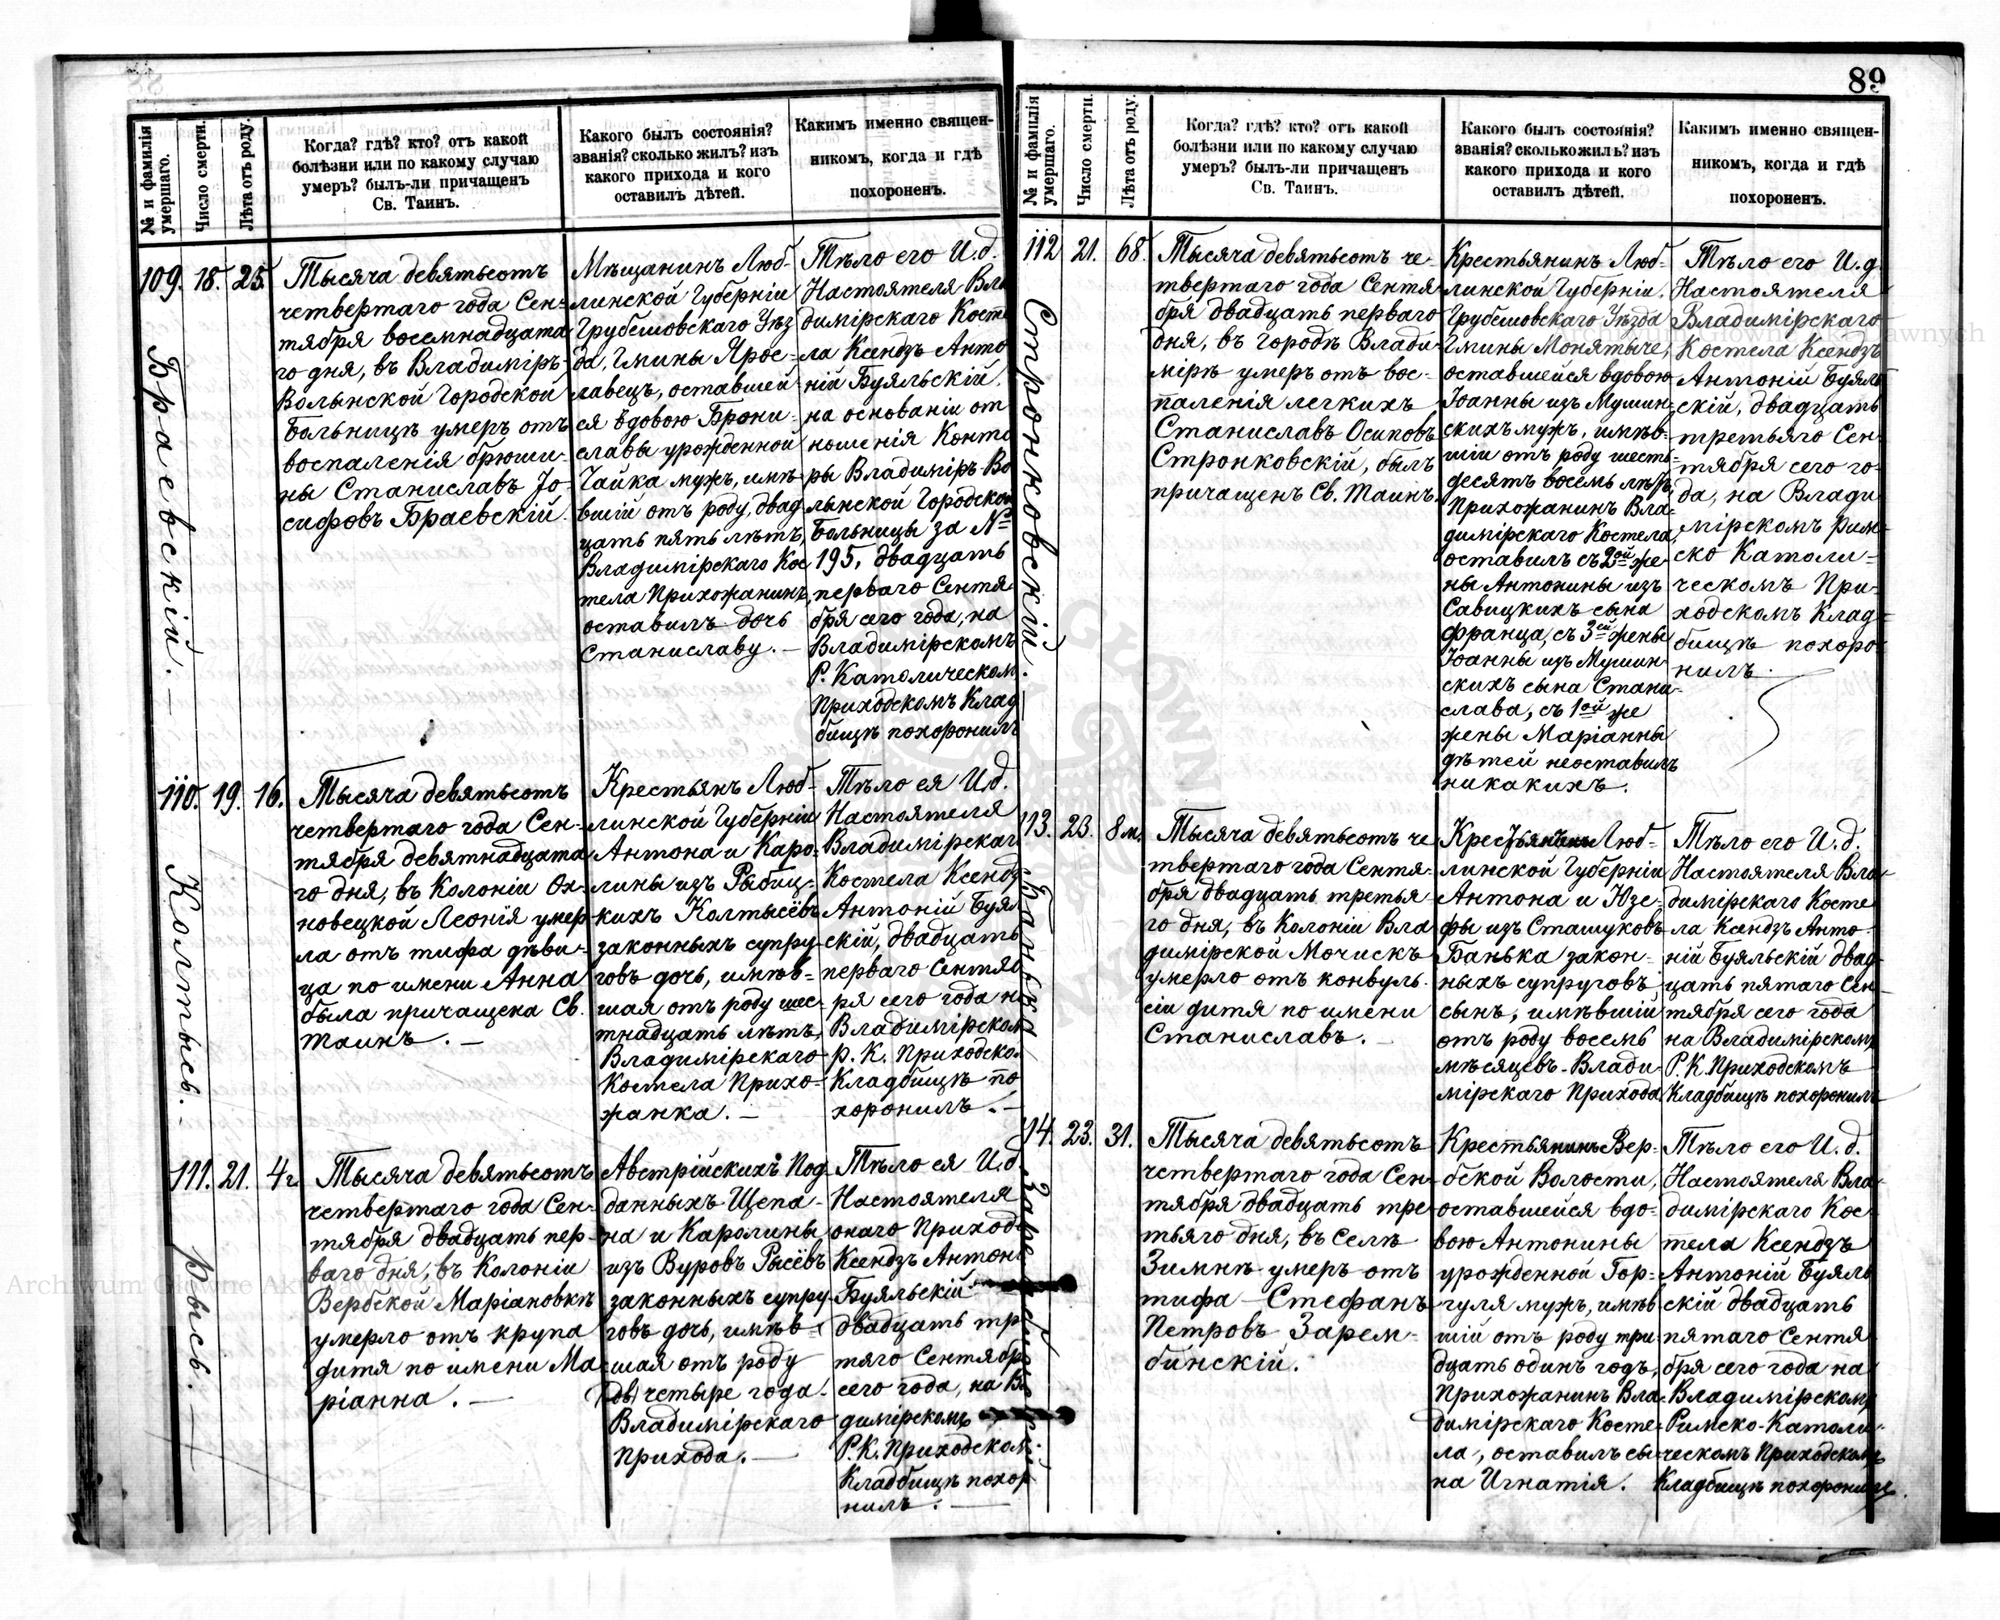 89
№ и фамилія умершаго.
Число смерти.
Лѣта отъ роду.
Когда? гдѣ? кто? отъ какой
болѣзни или по какому случаю
умеръ? былъ-ли причащенъ
Св. Таинъ.
Какого былъ состоянія?
званія? сколько жилъ? изъ
какого прихода и кого
оставилъ дѣтей.
Какимъ именно священ-
никомъ, когда и гдѣ
похороненъ.
109.
Браевскій. —
18.
25.
Тысяча девятьсотъ
четвертаго года Сен-
тября восемнадцата
го дня, въ Владиміръ-
Волынской Городской
Больницѣ умеръ отъ
воспаленія брюши-
ны Станиславъ Іо-
сифовъ Браевскій.
Мѣщанинъ Люб-
линской Губерніи
Грубешовскаго Уѣз
да, Гмины Ярос-
лавецъ, оставшей
ся вдовою Брони-
славы урожденной
Чайка мужъ, имѣ-
вшій отъ роду, двад
цать пять лѣтъ,
Владимірскаго Кос
тела Прихожанинъ,
оставилъ дочь
Станиславу. —
Тѣло его И. д.
Настоятеля Вла
димірскаго Косте
ла Ксендзъ Анто
ній Буяльскій,
на основаніи от
ношенія Конто
ры Владиміръ Во
лынской Городской
Больницы за №
195, двадцать
перваго Сентя
бря сего года, на
Владимірскомъ
Р. Католическом
Приходскомъ Клад
бищѣ похоронилъ
110.
Колтысь. —
19.
16.
Тысяча девятьсотъ
четвертаго года Сен-
тября девятнадцата
го дня, въ Колоніи Ох-
новецкой Леонія умер
ла отъ тифа дѣви-
ца по имени Анна
была причащена Св.
Таинъ. —
Крестьянъ Люб-
линской Губерніи
Антона и Каро-
лины изъ Рыбиц-
кихъ Колтысёвъ
законныхъ супру-
говъ дочь, имѣв-
шая отъ роду шес-
тнадцать лѣтъ,
Владимірскаго
Костела Прихо-
жанка. —
Тѣло ея И. д.
Настоятеля
Владимірскаг
Костела Ксендз
Антоній Буял
скій, двадцать
перваго Сентяб
ря сего года н
Владимірском
р. К. Приходско
Кладбищѣ по
хоронилъ. —
111.
Рысь. —
21.
4 г
Тысяча девятьсотъ
четвертаго года Сен-
тября двадцать пер-
ваго дня, въ Колоніи
Вербской Маріановкѣ
умерло отъ крупа
дитя по имени Ма-
ріанна. —
Австрійскихъ Под
данныхъ Щепа-
на и Каролины
изъ Вуровъ Рысёвъ
законныхъ супру-
говъ дочь, имѣв-
шая отъ роду
(дв) четыре года
Владимірскаго
Прихода. —
Тѣло ея И. д.
Настоятеля
онаго Приход
Ксендзъ Антон
Буяльскій
двадцать тр
тяго Сентябр
сего года, на Вл
димірскомъ
Р. К. Приходском
Кладбищѣ похор
нилъ. —
№ и фамилія умершаго.
Число смерти.
Лѣта отъ роду.
Когда? гдѣ? кто? отъ какой
болѣзни или по какому случаю
умеръ? былъ-ли причащенъ
Св. Таинъ.
Какого былъ состоянія?
званія? сколько жилъ? изъ
какого прихода и кого
оставилъ дѣтей.
Какимъ именно священ-
никомъ, когда и гдѣ
похороненъ.
112
Стронковскій.
21.
68.
Тысяча девятьсотъ че-
твертаго года Сентя-
бря двадцать перваго
дня, въ городѣ Влади-
мірѣ умеръ отъ вос-
паленія легкихъ
Станиславъ Осиповъ
Стронковскій, былъ
причащенъ Св. Таинъ.
Крестьянинъ Люб-
линской Губерніи,
Грубешовскаго Уѣзда
Гмины Монятыче,
оставшейся вдовою
Іоанны изъ Мушин-
скихъ мужъ, имѣв-
шій отъ роду шесть-
десятъ восемь лѣтъ,
Прихожанинъ Вла-
димірскаго Костела,
оставилъ съ 2ой же-
ны Антонины изъ
Савицкихъ сына
Франца, съ 3ей жены
Іоанны изъ Мушин-
скихъ сына Стани-
слава, съ 1ой же
жены Маріанны
дѣтей неоставилъ
никакихъ.
Тѣло его И. д.
Настоятеля
Владимірскаго
Костела Ксендзъ
Антоній Буяль
скій, двадцать
третьяго Сен-
тября сего го-
да, на Влади
мірскомъ Рим-
ско Католи-
ческомъ При-
ходскомъ Клад-
бищѣ похоро-
нилъ.
113.
Банька
23.
8 м.
Тысяча девятьсотъ че
твертаго года Сентя-
бря двадцать третья-
го дня, въ Колоніи Вла
димірской Мочискѣ
умерло отъ конвуль-
сіи дитя по имени
Станиславъ. —
Крестьянинъ Люб-
линской Губерніи
Антона и Юзе-
фы изъ Сташуковъ
Банька закон-
ныхъ супруговъ
сынъ, имѣвшій
отъ роду восемь
мѣсяцевъ. Влади-
мірскаго Прихода
Тѣло его И. д.
Настоятеля Вла-
димірскаго Косте
ла Ксендзъ Анто-
ній Буяльскій двад-
цать пятаго Сен-
тября сего года
на Владимірскомъ
Р. К. Приходскомъ
Кладбищѣ похоронилъ
114.
Зарембинскій.
23.
31.
Тысяча девятьсотъ
четвертаго года Сен-
тября двадцать тре
тьяго дня, въ Селѣ
Зимнѣ умеръ отъ
тифа — Стефанъ
Петровъ Зарем-
бинскій.
Крестьянинъ Вер-
бской Волости,
оставшейся вдо-
вою Антонины
урожденной Гор-
гуля мужъ, имѣв
шій отъ роду три-
дцать одинъ годъ,
Прихожанинъ Вла-
димірскаго Косте-
ла, оставилъ сы-
на Игнатія.
Тѣло его И. д.
Настоятеля Вла-
димірскаго Кос-
тела Ксендзъ
Антоній Буяль
скій двадцать
пятаго Сентя
бря сего года на
Владимірскомъ
Римско-Католи-
ческомъ Приходскомъ
Кладбищѣ похоронилъ.